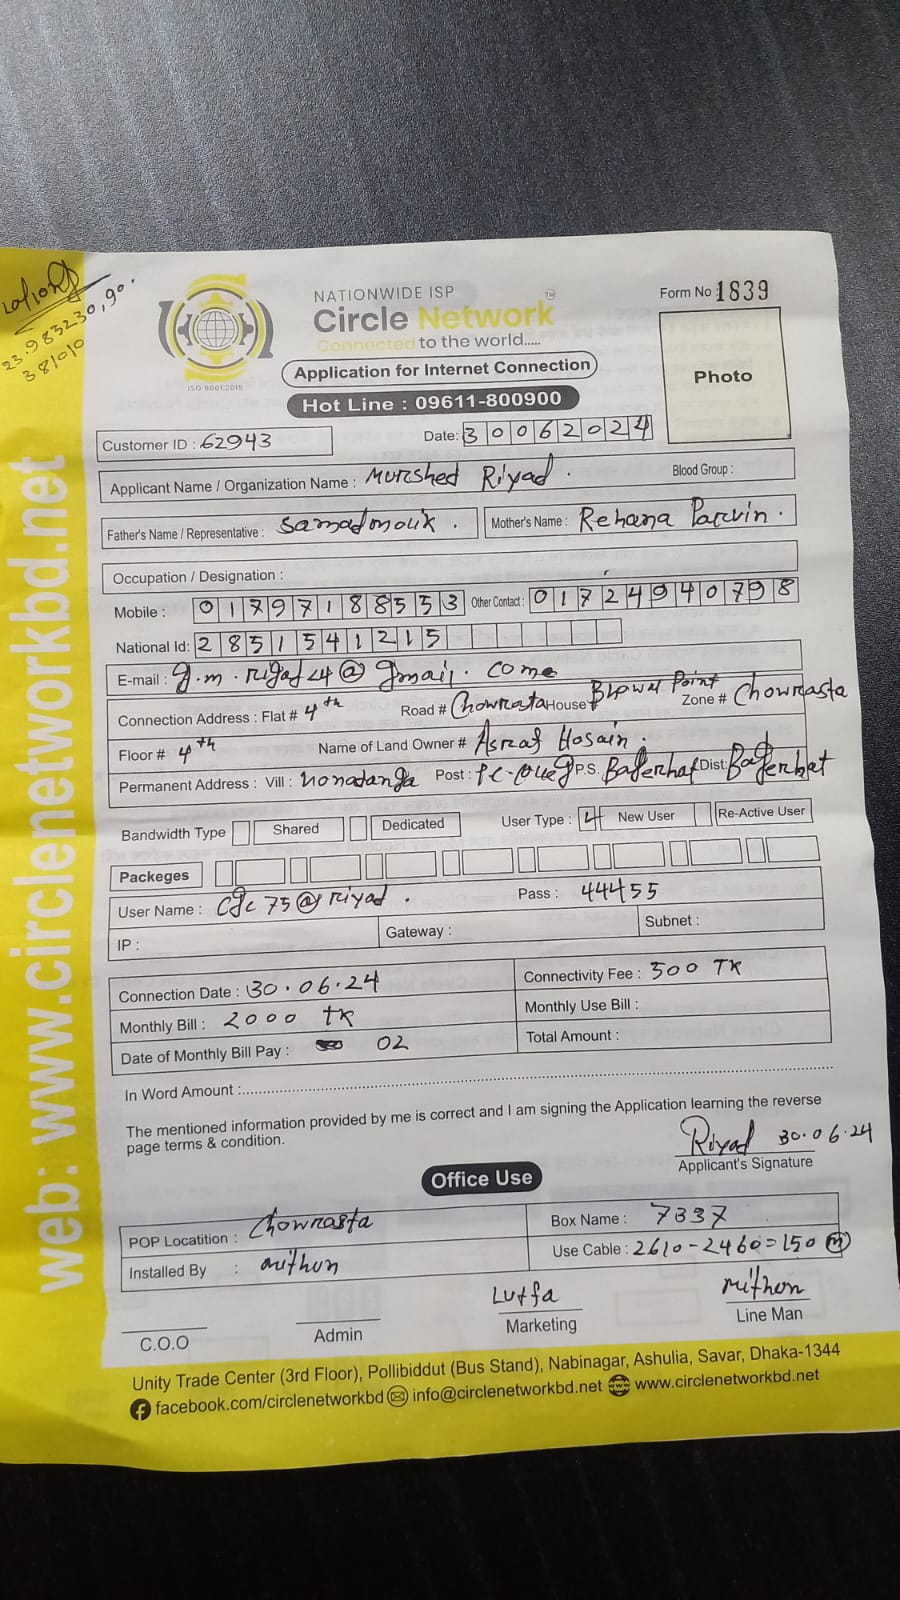 23.983230,90.
NATIONWIDE ISP
Circle Network TM
Connected to the world.....
ISO 9001:2015
Application for Internet Connection
Hot Line : 09611-800900
Form No 1839
Photo
Customer ID : 62943 Date: 30062024
Applicant Name / Organization Name : Murshed Riyad. Blood Group :
Father's Name / Representative : Samadmolik. Mother's Name : Rehana Parvin.
Occupation / Designation :
Mobile : 01797188553 Other Contact : 01724940798
National Id: 2851541215
E-mail :
Connection Address : Flat # 4th Road # Chowrata House # Point Zone # Chowrasta
Floor # 4th Name of Land Owner # Asraf Hosain
Permanent Address : Vill : nonadanga Post : P.S. Bagerhat Dist: Bagerhat
Bandwidth Type Shared Dedicated User Type : New User Re-Active User
Packeges
User Name : Pass : 44455
IP : Gateway : Subnet :
Connection Date : 30.06.24 Connectivity Fee : 500 TK
Monthly Bill : 2000 TK Monthly Use Bill :
Date of Monthly Bill Pay : 02 Total Amount :
In Word Amount :
The mentioned information provided by me is correct and I am signing the Application learning the reverse
page terms & condition.
Riyad 30.06.24
Applicant's Signature
Office Use
POP Locatition : Chowrasta Box Name : 7337
Installed By : mithun Use Cable : 2610-2460=150 m
Lutfa mithun
C.O.O Admin Marketing Line Man
Unity Trade Center (3rd Floor), Pollibiddut (Bus Stand), Nabinagar, Ashulia, Savar, Dhaka-1344
facebook.com/circlenetworkbd info@circlenetworkbd.net www.circlenetworkbd.net
web: www.circlenetworkbd.net